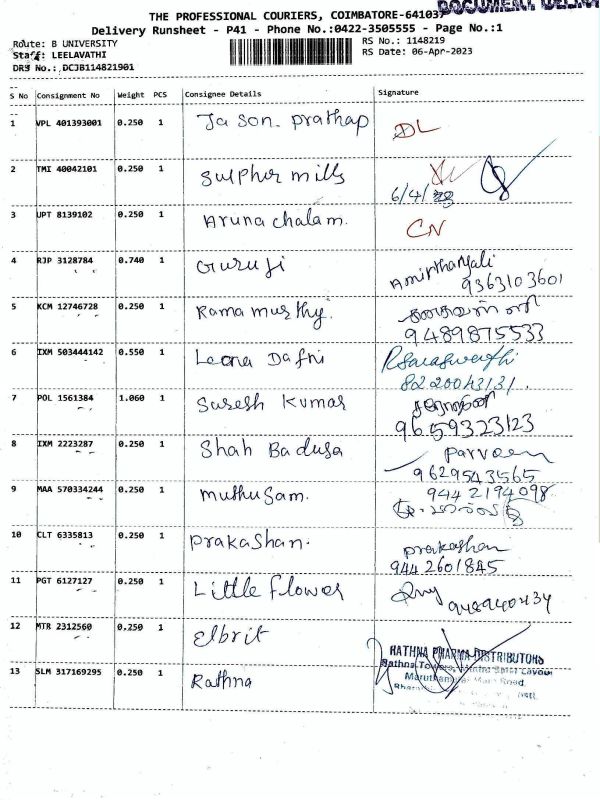 THE PROFESSIONAL COURIERS, COIMBATORE-641037
DOCUMENT
Delivery Runsheet - P41 - Phone No.:0422-3505555 - Page No.:1
Route: B UNIVERSITY
RS No.: 1148219
Staff: LEELAVATHI
RS Date: 06-Apr-2023
DRS No.: DCJB114821901
S No Consignment No Weight PCS Consignee Details Signature
1 VPL 401393001 0.250 1 Jason. prathap DL
2 TMI 40042101 0.250 1 Sulphur mills 6/4/23
3 UPT 8139102 0.250 1 Aruna chalam. CN
4 RJP 3128784 0.740 1 Guruji Amirthanjali
9363103601
5 KCM 12746728 0.250 1 Rama murthy.
9489875533
6 IXM 503444142 0.550 1 Leona Dafni RSaraswathi
8220043131.
7 POL 1561384 1.060 1 Suresh Kumar
9659323123
8 IXM 2223287 0.250 1 Shah Badusa Parveen
9629543565
9 MAA 570334244 0.250 1 muthusam. 9442194098
10 CLT 6335813 0.250 1 prakashan. prakashan
9442601845
11 PGT 6127127 0.250 1 Little flower
12 MTR 2312560 0.250 1 elbrit
RATHNA PHARMA DISTRIBUTORS
13 SLM 317169295 0.250 1 Rathna Rathna Towers,